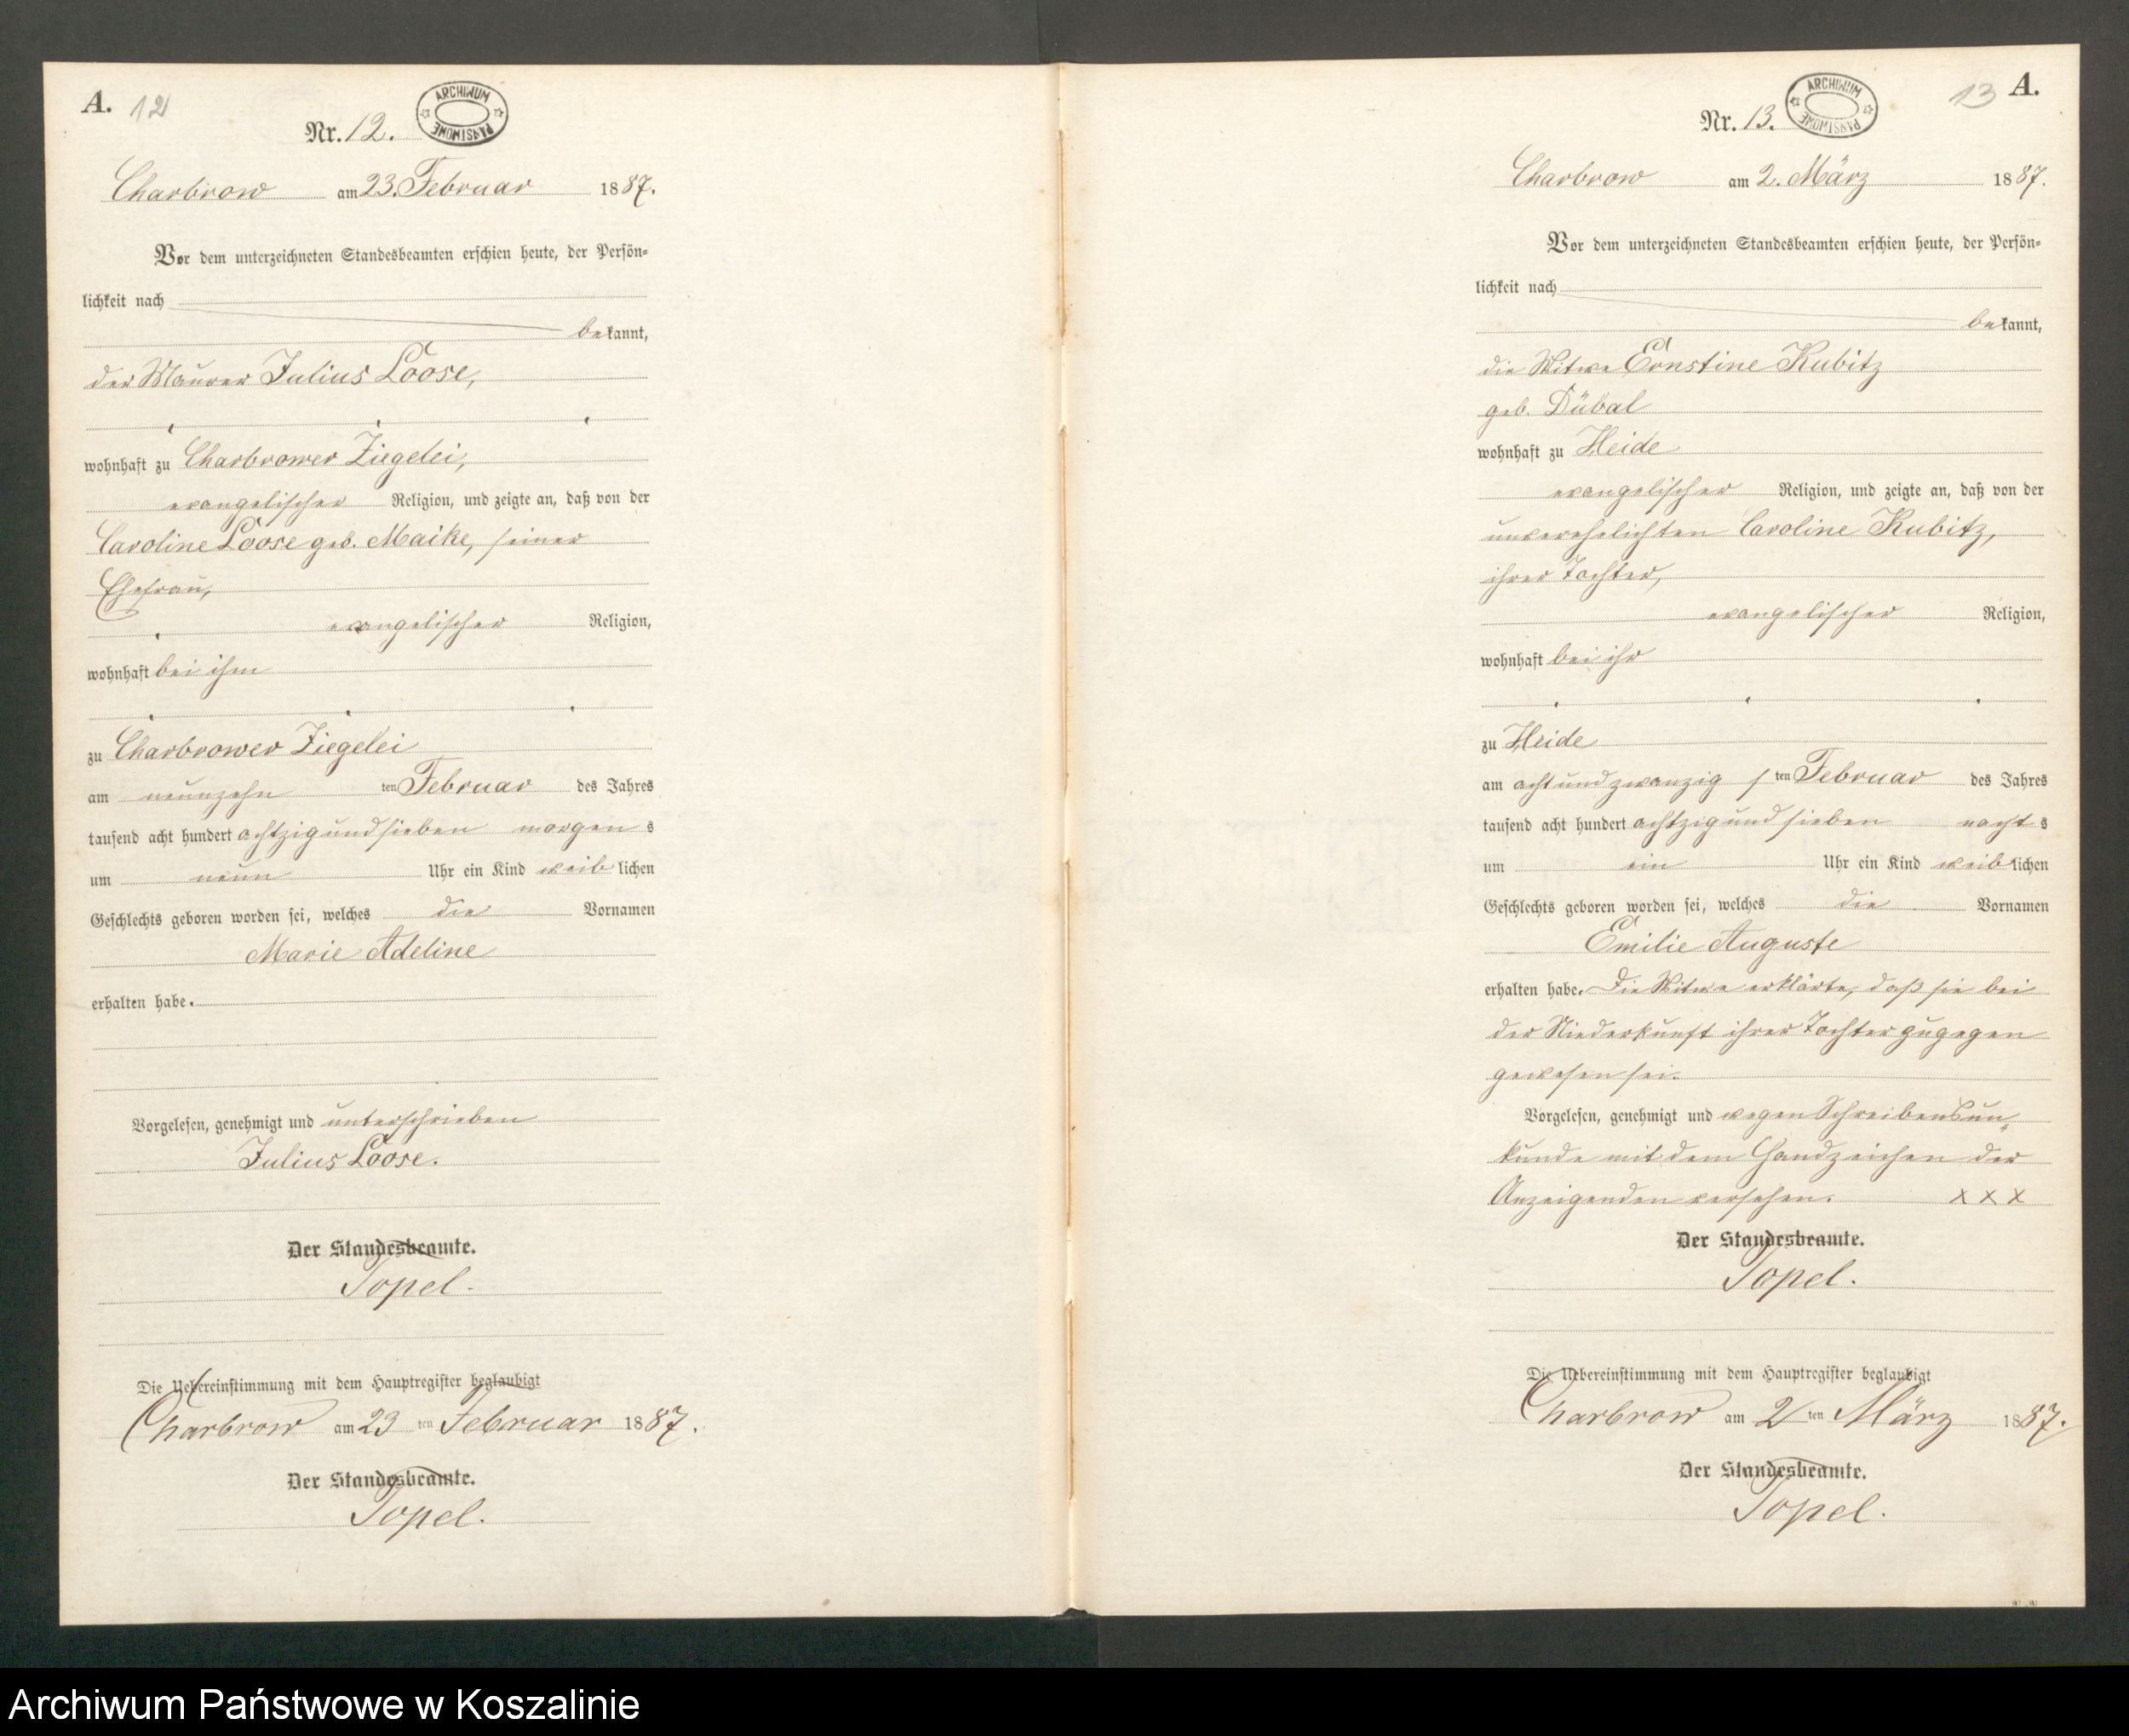 A. 12
Nr. 12.
ARCHIWUM PAŃSTWOWE
Charbrow am 23. Februar 1887.
Vor dem unterzeichneten Standesbeamten erschien heute, der Persön-
lichkeit nach
bekannt,
der Maurer Julius Loose,
wohnhaft zu Charbrower Ziegelei,
evangelischer Religion, und zeigte an, daß von der
Caroline Loose geb. Maike, seiner
Ehefrau,
evangelischer Religion,
wohnhaft bei ihm
zu Charbrower Ziegelei
am neunzehn ten Februar des Jahres
tausend acht hundert achtzig und sieben morgens
um neun Uhr ein Kind weiblichen
Geschlechts geboren worden sei, welches die Vornamen
Marie Adeline
erhalten habe.
Vorgelesen, genehmigt und unterschrieben
Julius Loose.
Der Standesbeamte.
Topel.
Die Uebereinstimmung mit dem Hauptregister beglaubigt
Charbrow am 23 ten Februar 1887.
Der Standesbeamte.
Topel.
13 A.
Nr. 13.
ARCHIWUM PAŃSTWOWE
Charbrow am 2. März 1887.
Vor dem unterzeichneten Standesbeamten erschien heute, der Persön-
lichkeit nach
bekannt,
die Witwe Ernstine Kubitz
geb. Dübal
wohnhaft zu Heide
evangelischer Religion, und zeigte an, daß von der
unverehelichten Caroline Kubitz,
ihrer Tochter,
evangelischer Religion,
wohnhaft bei ihr
zu Heide
am acht und zwanzig sten Februar des Jahres
tausend acht hundert achtzig und sieben nachts
um ein Uhr ein Kind weiblichen
Geschlechts geboren worden sei, welches die Vornamen
Emilie Auguste
erhalten habe. Die Witwe erklärte, daß sie bei
der Niederkunft ihrer Tochter zugegen
gewesen sei.
Vorgelesen, genehmigt und wegen Schreibensun-
kunde mit dem Handzeichen der
Anzeigenden versehen. X X X
Der Standesbeamte.
Topel.
Die Uebereinstimmung mit dem Hauptregister beglaubigt
Charbrow am 2 ten März 1887.
Der Standesbeamte.
Topel.
Archiwum Państwowe w Koszalinie